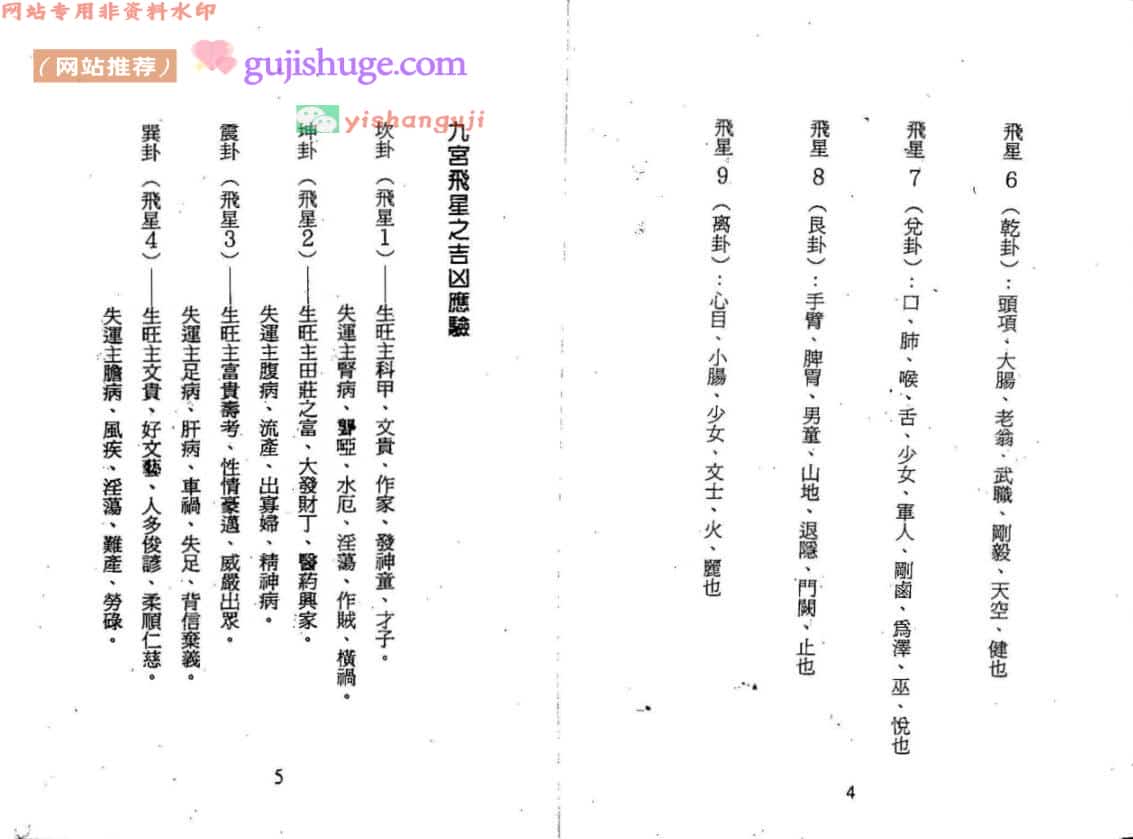 网站专用非资料水印
（网站推荐）
gujishuge.com
yishanguji
飛星6（乾卦）：頭項、大腸、老翁、武職、剛毅、天空、健也
飛星7（兌卦）：口、肺、喉、舌、少女、軍人、剛鹵、爲澤、巫、悅也
飛星8（艮卦）：手臂、脾胃、男童、山地、退隱、門闕、止也
飛星9（离卦）：心目、小腸、少女、文士、火、麗也
4
九宮飛星之吉凶應驗
坎卦（飛星1）——生旺主科甲、文貴、作家、發神童、才子。
失運主腎病、聾啞、水厄、淫蕩、作賊、橫禍。
坤卦（飛星2）——生旺主田莊之富、大發財丁、醫药興家。
失運主腹病、流產、出寡婦、精神病。
震卦（飛星3）——生旺主富貴壽考、性情豪邁、威嚴出眾。
失運主足病、肝病、車禍、失足、背信棄義。
巽卦（飛星4）——生旺主文貴、好文藝、人多俊諺、柔順仁慈。
失運主膽病、風疾、淫蕩、難產、勞碌。
5